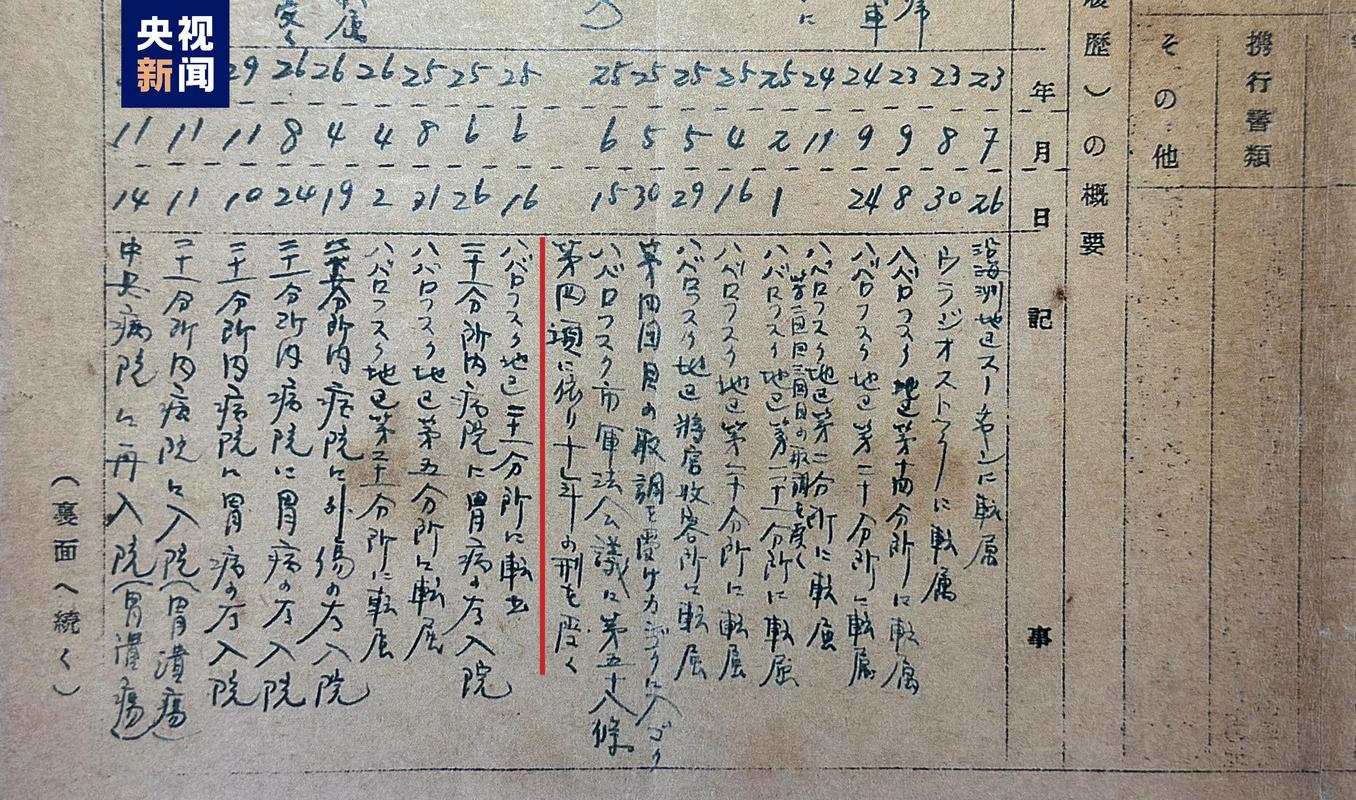 央视
新闻
携行書類
その他
歴）の概要
年
月
日
記
事
23 7 26 沿海州地区スーチヤンに転属
23 8 30 ウラジオストックに転属
23 9 8 ハバロフスク地区第十四分所に転属
24 9 24 ハバロフスク地区第二十分所に転属
24 11 ハバロフスク地区第二分所に転属
第二回目三回目の取調を受く
25 2 1 ハバロフスク地区第二十一分所に転属
25 4 16 ハバロフスク地区第二十分所に転属
25 5 29 ハバロフスク地区将官收容所に転属
25 5 30 第四回目の取調を受け
25 6 15 ハバロフスク市軍法会議に第五十八條
第四項に依り十年の刑を受く
25 6 16 ハバロフスク地区二十一分所に転出
25 6 26 二十一分所内病院に胃病の为入院
25 8 21 ハバロフスク地区第五分所に転属
26 4 2 ハバロフスク地区第二十一分所に転属
26 4 19 分所内病院に外傷の为入院
26 8 24 二十一分所内病院に胃病の为入院
29 11 10 二十一分所内病院に胃病の为入院
11 11 二十一分所内病院に入院（胃潰瘍）
11 14 中央病院に再入院（胃潰瘍）
（裏面へ続く）